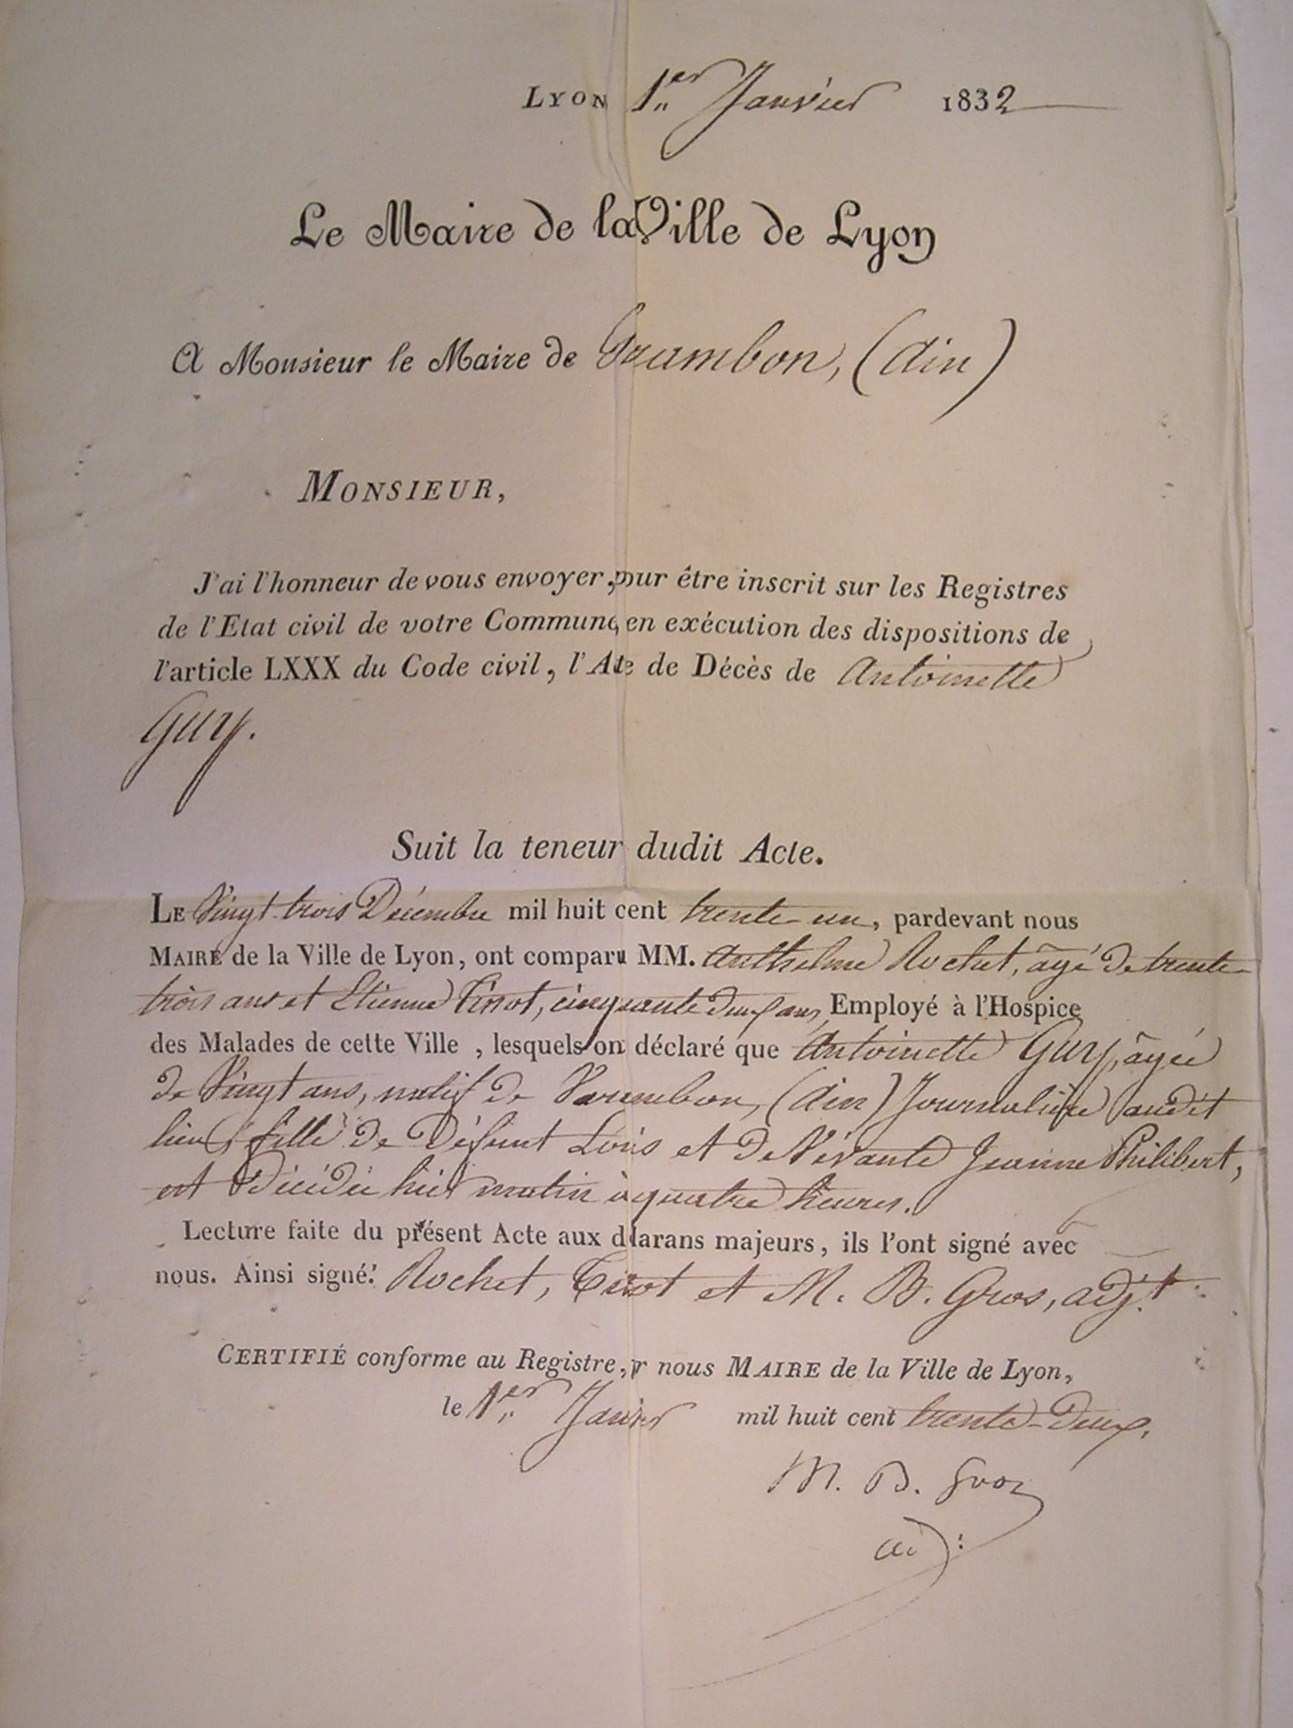 LYON 1er Janvier 1832
Le Maire de la Ville de Lyon
A Monsieur le Maire de Varambon, (Ain)
MONSIEUR,
J'ai l'honneur de vous envoyer, pour être inscrit sur les Registres
de l'Etat civil de votre Commune, en exécution des dispositions de
l'article LXXX du Code civil, l'Acte de Décès de Antoinette
Guy.
Suit la teneur dudit Acte.
LE Vingt trois Décembre mil huit cent trente-un, pardevant nous
MAIRE de la Ville de Lyon, ont comparu MM. Anthelme Rochet, âgé de trente-
trois ans et Etienne Tissot, cinquante deux ans, Employé à l'Hospice
des Malades de cette Ville, lesquels ont déclaré que Antoinette Guy, âgée
de Vingt ans, natif de Varambon, (Ain) Journalière audit
lieu, fille de Défunt Louis et de Vivante Jeanne Philibert,
est Décédée hier matin à quatre heures.
Lecture faite du présent Acte aux déclarans majeurs, ils l'ont signé avec
nous. Ainsi signé: Rochet, Tissot et M. B. Gros, adj.t
CERTIFIÉ conforme au Registre, par nous MAIRE de la Ville de Lyon,
le 1er Janvier mil huit cent trente-Deux.
M. B. Gros
adj: